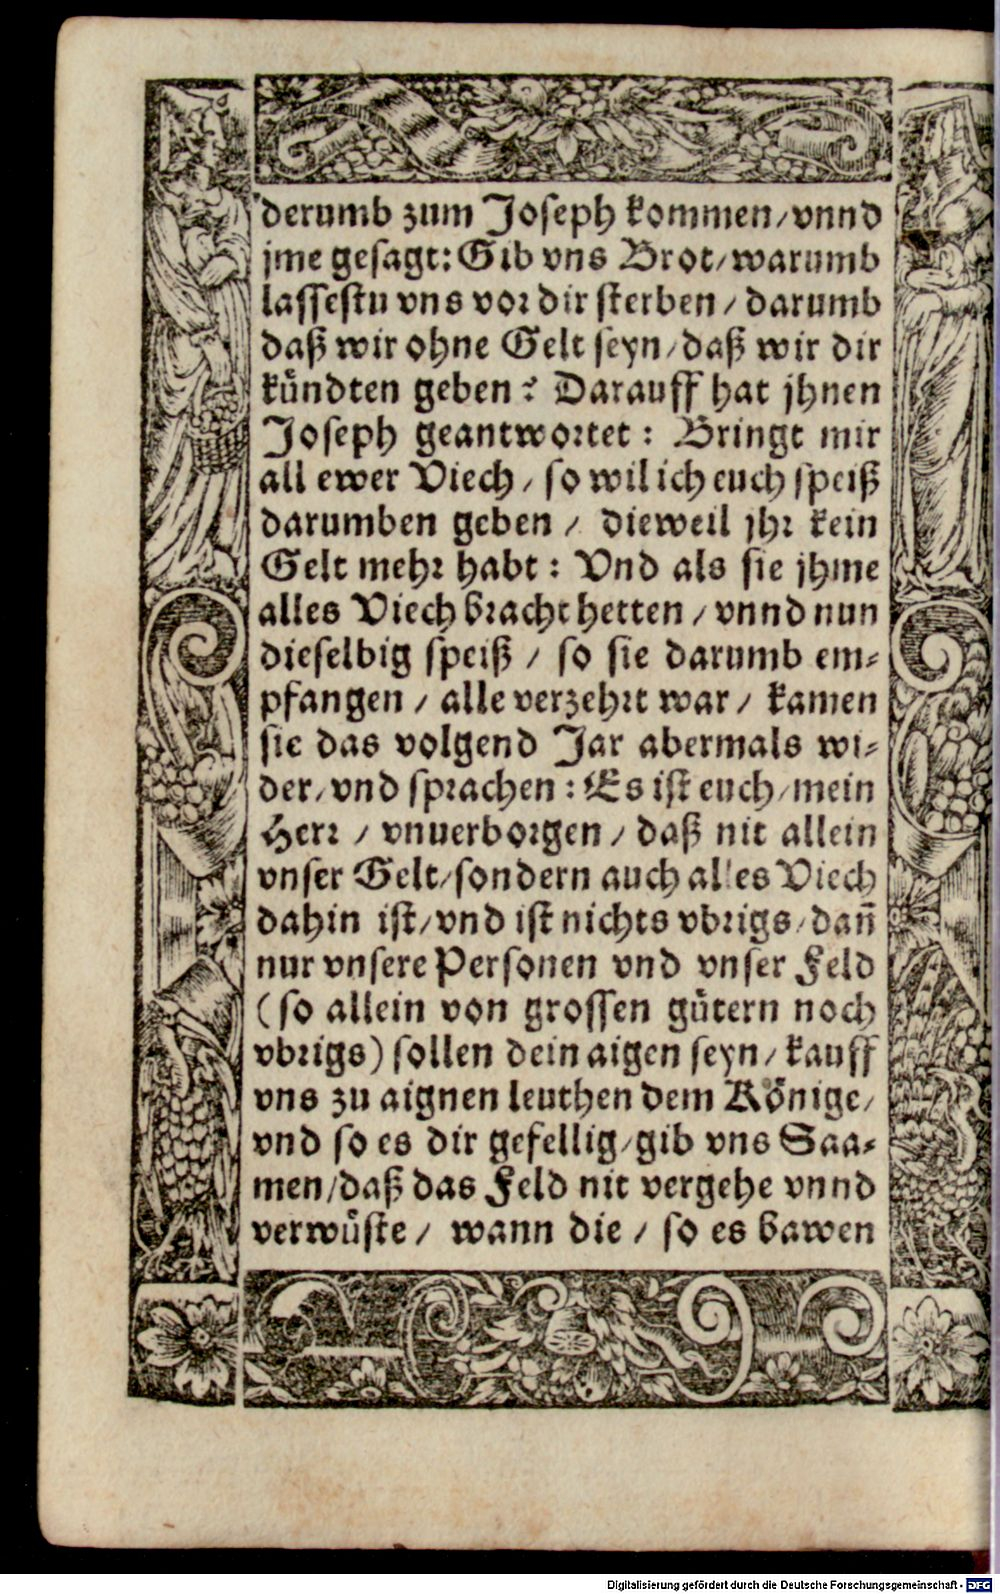 derumb zum Joseph kommen/vnnd
jme gesagt: Gib vns Brot/warumb
lassestu vns vor dir sterben/darumb
daß wir ohne Gelt seyn/daß wir dir
kuͤndten geben? Darauff hat jhnen
Joseph geantwortet: Bringt mir
all ewer Viech/so wil ich euch speiß
darumben geben/ dieweil jhr kein
Gelt mehr habt: Vnd als sie jhme
alles Viech bracht hetten/vnnd nun
dieselbig speiß/ so sie darumb em⸗
pfangen/alle verzehrt war/ kamen
sie das volgend Jar abermals wi⸗
der/vnd sprachen: Es ist euch/mein
Herr/ vnuerborgen/daß nit allein
vnser Gelt/sondern auch alles Viech
dahin ist/vnd ist nichts vbrigs/dañ
nur vnsere Personen vnd vnser Feld
(so allein von grossen guͤtern noch
vbrigs) sollen dein aigen seyn/kauff
vns zu aignen leuthen dem Koͤnige/
vnd so es dir gefellig/gib vns Saa⸗
men/daß das Feld nit vergehe vnnd
verwuͤste/ wann die/ so es bawen
Digitalisierung gefördert durch die Deutsche Forschungsgemeinschaft - DFG